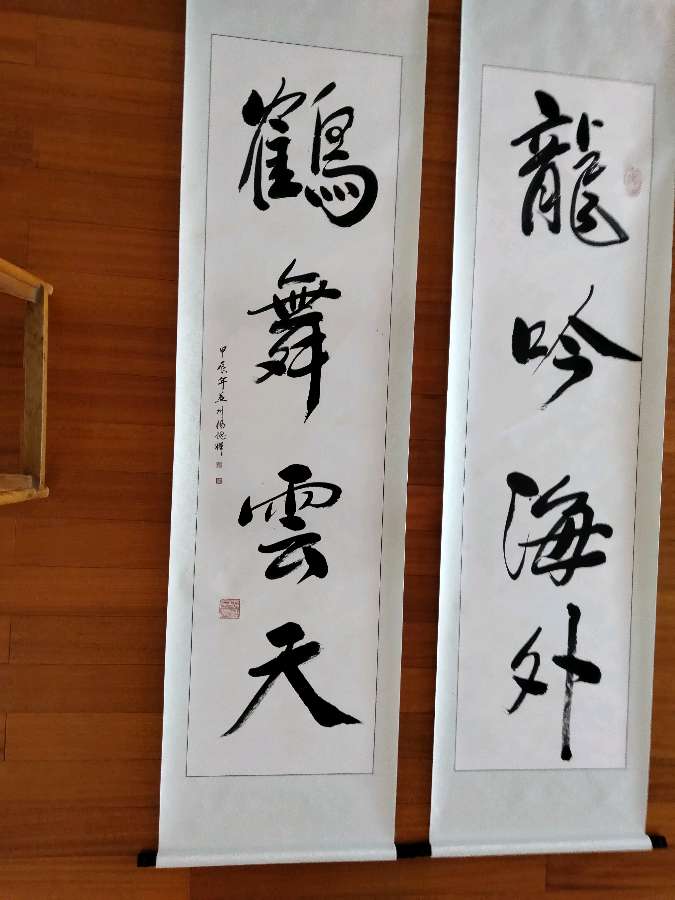 龍吟海外
鶴舞雲天
甲辰年